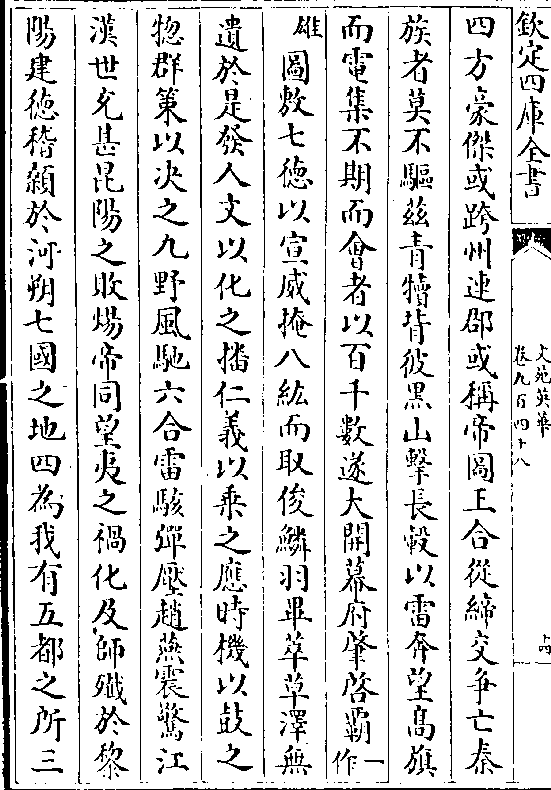 欽定四庫全書
文苑英華
卷九百四十八
四方豪傑或跨州連郡或稱帝圖王合從締交爭亡秦
族者莫不驅茲青犢背彼黑山擊長轂以雷奔望高旗
而電集不期而會者以百千數遂大開幕府肇啓霸一作
雄圖敷七徳以宣威掩八紘而取俊鱗羽畢萃草澤無
遺於是發人文以化之播仁義以乗之應時機以鼓之
惣群策以决之九野風馳六合雷駭彈壓趙燕震驚江
漢世充甚昆陽之敗煬帝同望夷之禍化及師殲於黎
陽建徳稽顙於河朔七國之地四為我有五都之所三